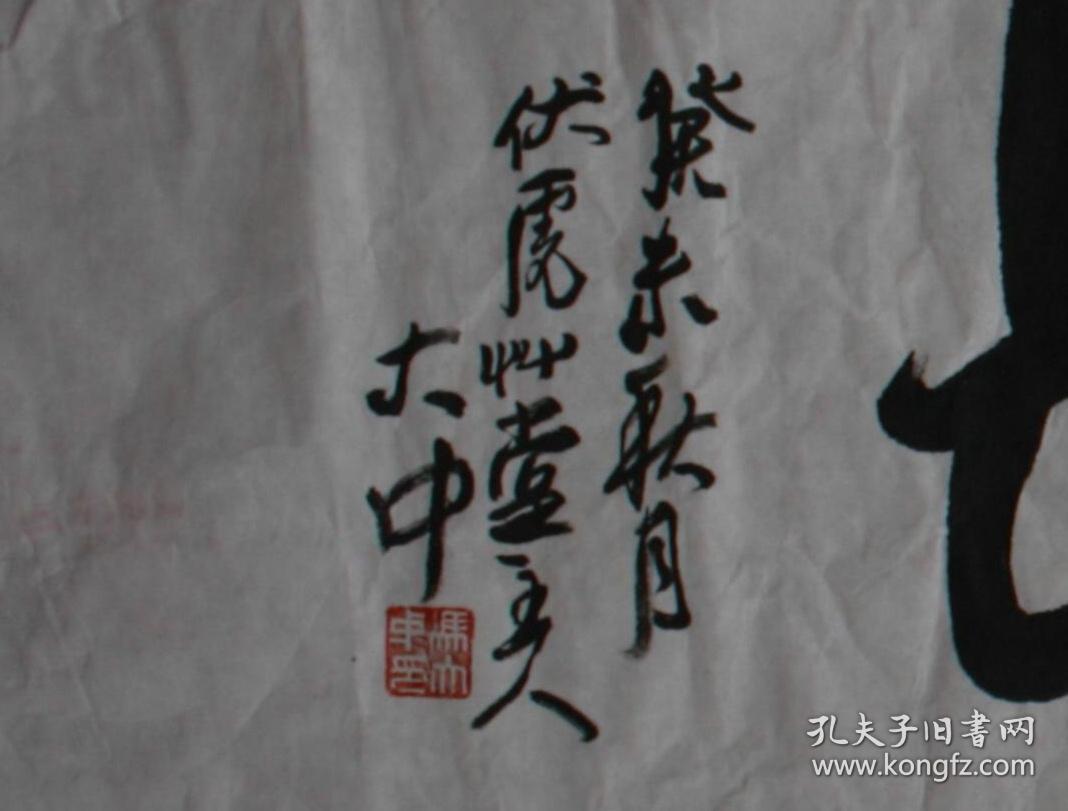 癸未秋月
伏虎艸堂主人
大中
馮大中印
孔夫子旧书网
www.kongfz.com